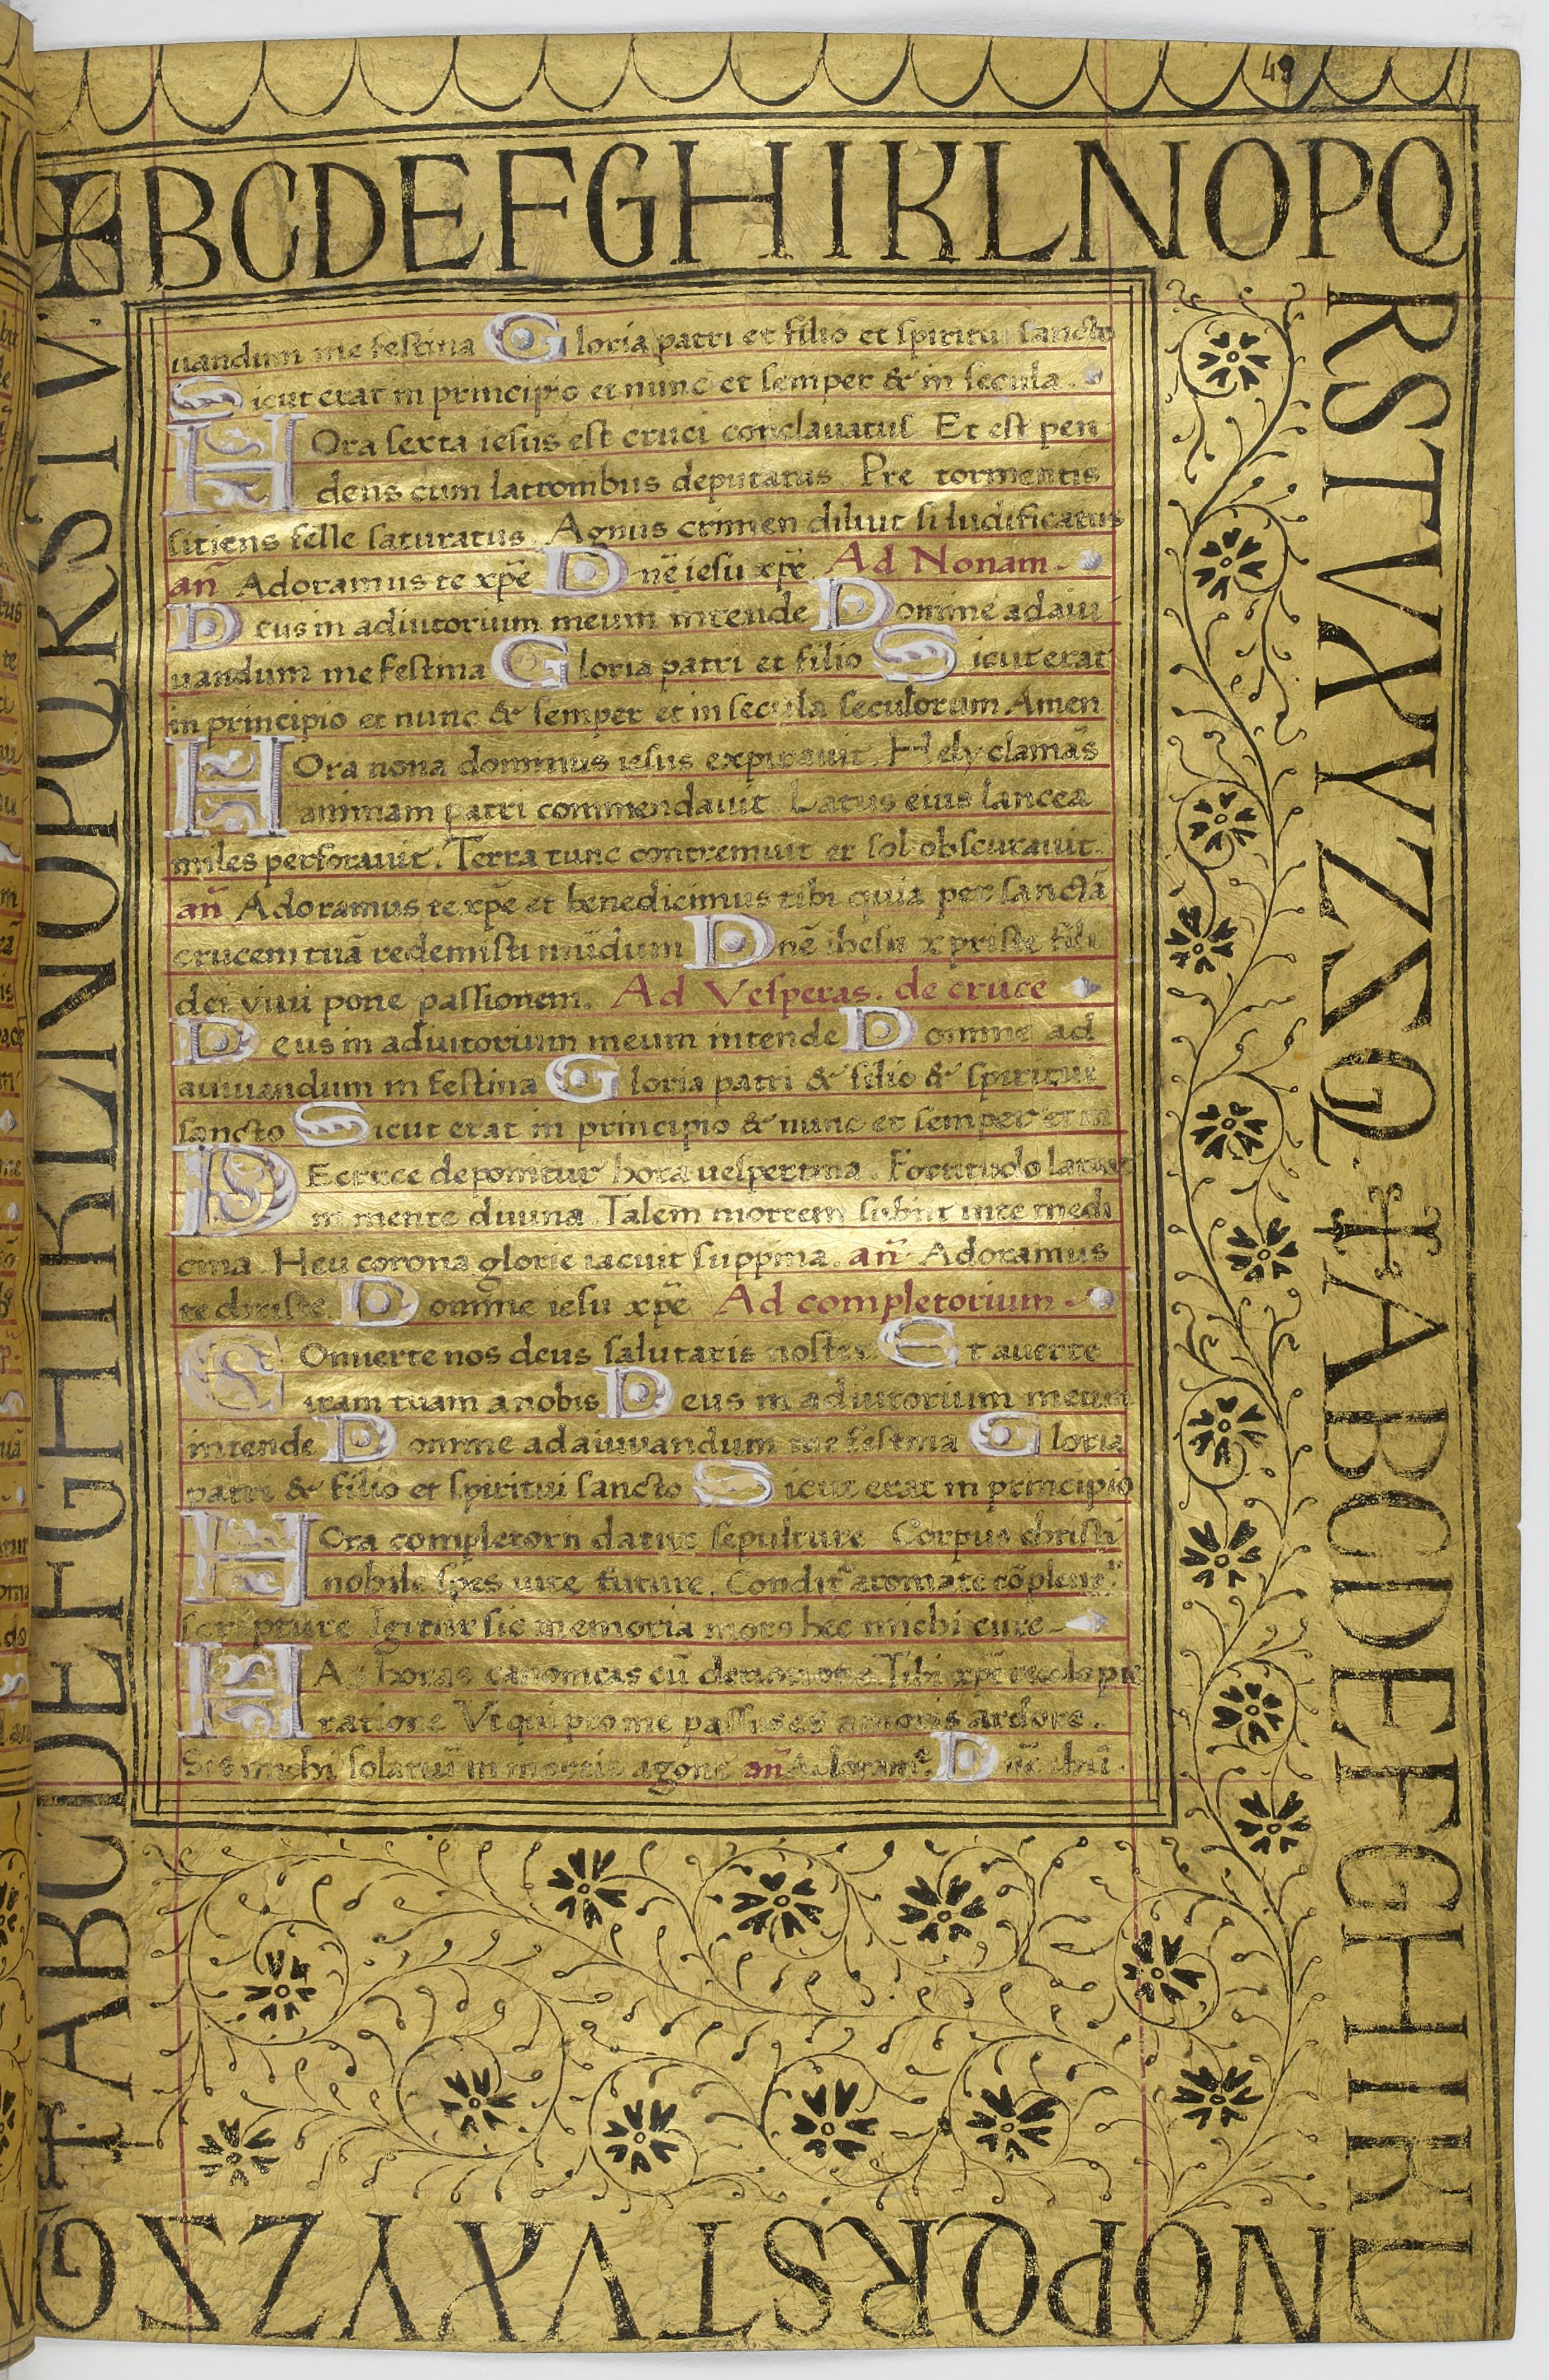 49
BCDEFGHIKLNOPQ
uandum me festina Gloria patri et filio et spiritui sancto
Sicut erat in principio et nunc et semper & in secula.
HOra sexta iesus est cruci conclauatus Et est pen
dens cum latronibus deputatus. Pre tormentis
sitiens felle saturatus. Agnus crimen diluit si ludificatus
an̄ Adoramus te xp̄e Dn̄e iesu xp̄e Ad Nonam
Deus in adiutorium meum intende Domine adaiu
uandum me festina Gloria patri et filio Sicut erat
in principio et nunc & semper et in secula seculorum Amen
HOra nona dominus iesus expirauit. Hely clamās
animam patri commendauit Latus eius lancea
miles perforauit. Terra tunc contremuit et sol obscurauit.
an̄ Adoramus te xp̄e et benedicimus tibi quia per sanctā
crucem tuā redemisti mūdum Dn̄e ihesu xpriste fili
dei viui pone passionem. Ad Vesperas. de cruce
Deus in adiutorium meum intende Domine ad
aiuuandum m festina Gloria patri & filio & spiritui
sancto Sicut erat in principio & nunc et semper et in
DE cruce deponitur hora uespertina. Fortitudo latuit
in mente diuina Talem mortem subiit uite medi
cina. Heu corona glorie iacuit suppina. an̄ Adoramus
te christe. Domine iesu xp̄e Ad completorium
COnuerte nos deus salutaris noster Et auerte
iram tuam a nobis Deus in adiutorium meum
intende Domine adaiuuandum me festina Gloria
patri & filio et spiritui sancto Sicut erat in principio
HOra completorii datur sepulture Corpus christi
nobile spes uite future. Condit̄ aromate cōplent̄
scripture Igitur sic memoria mors hec michi cure
HAs horas canonicas cū deuotione Tibi xp̄e recolo pie
ratione Vt qui pro me passus es amoris ardore.
Sis michi solatiū in mortis agone an̄ Dn̄e ihū.
RSTVXYZ
ABCDEFGHIKL
NOPQRSTVXYZ
ABCDEFGHIKLNOPQRSTV